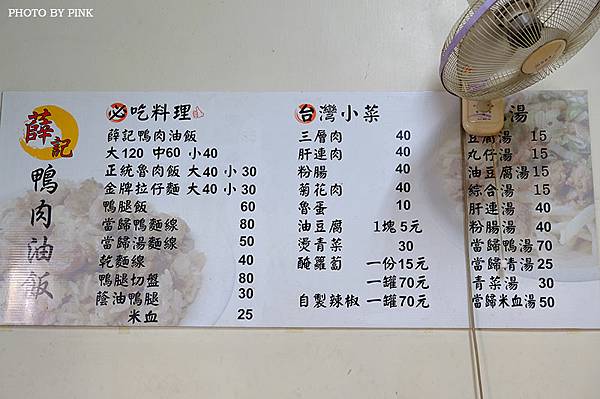 PHOTO BY PINK
薛記
鴨肉油飯
必吃料理
薛記鴨肉油飯
大120 中60 小40
正統魯肉飯 大40 小30
金牌拉仔麵 大40 小30
鴨腿飯 60
當歸鴨麵線 80
當歸湯麵線 50
乾麵線 40
鴨腿切盤 80
蔭油鴨腿 30
米血 25
台灣小菜
三層肉 40
肝連肉 40
粉腸 40
菊花肉 40
魯蛋 10
油豆腐 1塊5元
燙青菜 30
醃蘿蔔 一份15元
一罐70元
自製辣椒 一罐70元
湯
豆腐湯 15
丸仔湯 15
油豆腐湯 15
綜合湯 15
肝連湯 40
粉腸湯 40
當歸鴨湯 70
當歸清湯 25
青菜湯 30
當歸米血湯 50